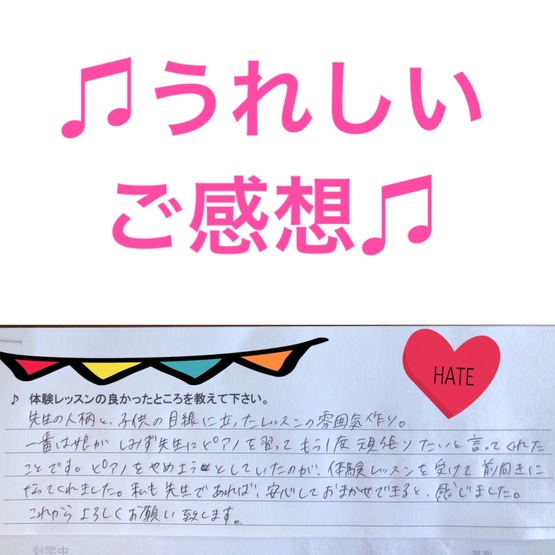 ♫うれしい
ご感想♫
HATE
♪ 体験レッスンの良かったところを教えて下さい。
先生の人柄と、子供の目線に立ったレッスンの雰囲気作り。
一番は娘が しみず先生にピアノを習って もう1度 頑張りたいと 言ってくれた
ことです。ピアノをやめようとしていたのが、体験レッスンを受けて 前向きに
なってくれました。私も先生であれば、安心しておまかせできると、感じました。
これから よろしくお願い致します。